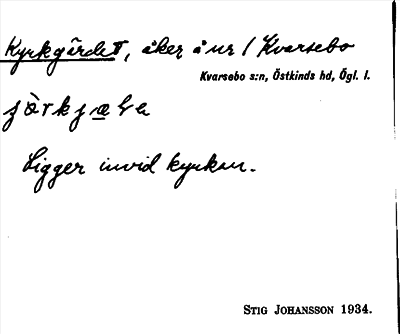 Kyrkgärdet, åker å nr 1 Kvarsebo
Kvarsebo s:n, Östkinds hd, Ögl. l.
Ligger invid kyrkan.
STIG JOHANSSON 1934.